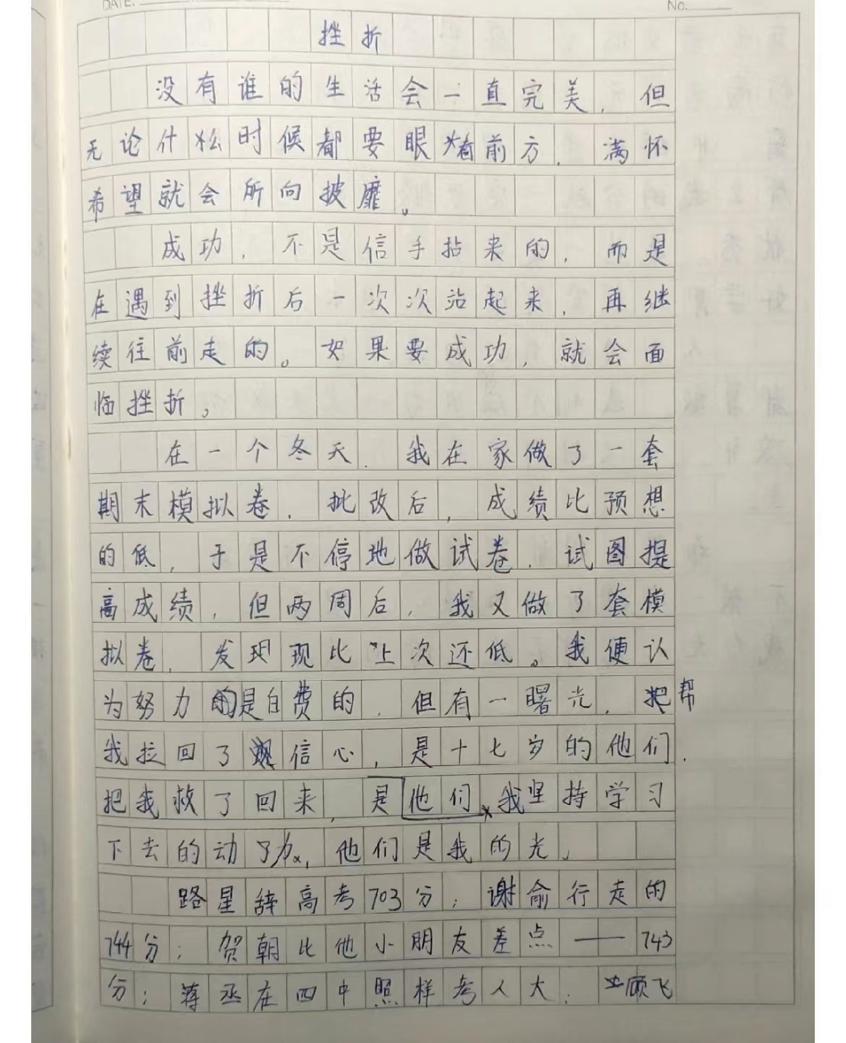 DATE.
No.
挫折
没有谁的生活会一直完美，但
无论什么时候都要眼看前方，满怀
希望就会所向披靡。
成功，不是信手拈来的，而是
在遇到挫折后一次次站起来，再继
续往前走的。如果要成功，就会面
临挫折。
在一个冬天，我在家做了一套
期末模拟卷，批改后，成绩比预想
的低，于是不停地做试卷，试图提
高成绩，但两周后，我又做了套模
拟卷，发现比上次还低。我便认
为努力是白费的，但有一曙光，帮
我拉回了信心，是十七岁的他们，
把我救了回来，是他们，我坚持学习
下去的动力，他们是我的光。
路星辞高考703分；谢俞行走的
744分；贺朝比他小朋友差点——743
分；蒋丞在四中照样考人大；顾飞